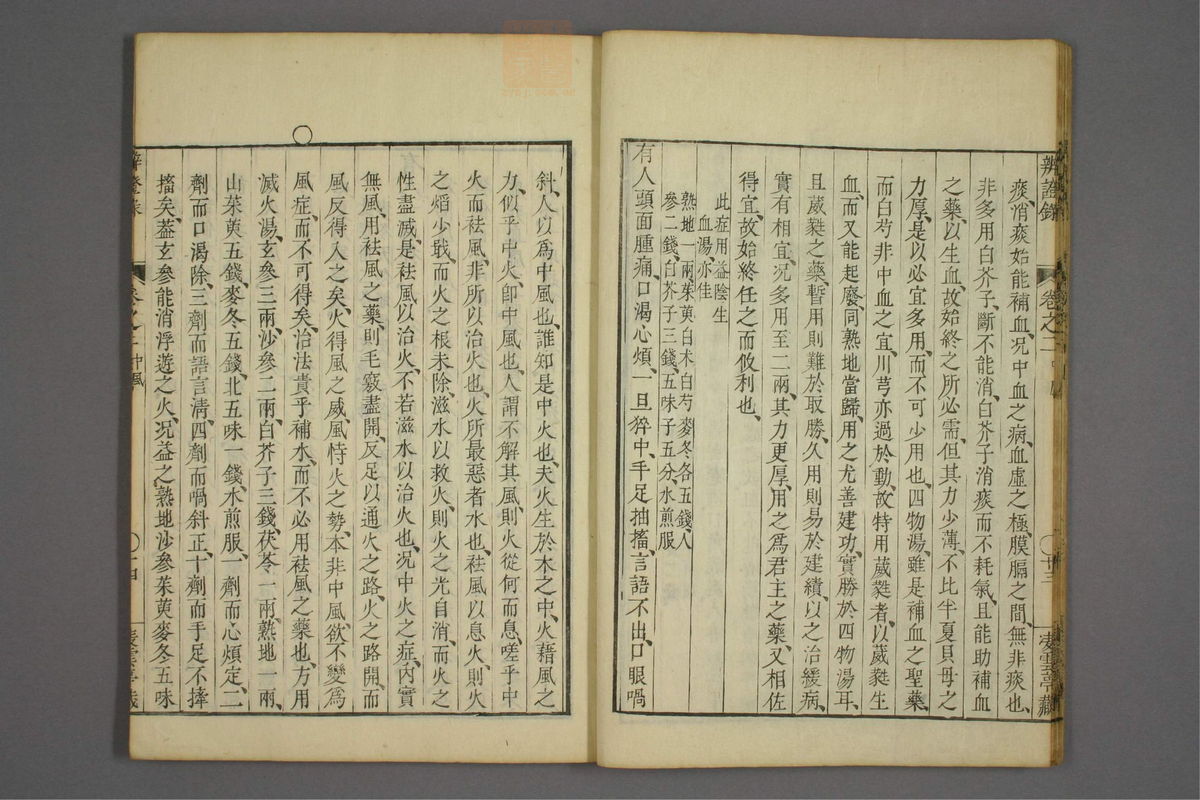 辨證錄 卷之二 中風 十三 凌雲亭藏
痰、消痰始能補血、况中血之病、血虛之極、膜膈之間、無非痰也、
非多用白芥子、斷不能消、白芥子消痰而不耗氣、且能助補血
之藥、以生血、故始終之所必需、但其力少薄、不比半夏貝母之
力厚、是以必宜多用、而不可少用也、四物湯、雖是補血之聖藥、
而白芍非中血之宜、川芎亦過於動、故特用葳蕤者、以葳蕤生
血、而又能起廢、同熟地當歸、用之尤善建功、實勝於四物湯耳、
且葳蕤之藥、暫用則難於取勝、久用則易於建績、以之治緩病、
實有相宜、况多用至二兩、其力更厚、用之爲君主之藥、又相佐
得宜、故始終任之而攸利也、
此症用益陰生
血湯、亦佳
熟地一兩茱萸白术白芍麥冬各五錢、人
參二錢、白芥子三錢、五味子五分、水煎服
有人頭面腫痛、口渴心煩、一旦猝中、手足抽搐、言語不出、口眼喎
斜、人以爲中風也、誰知是中火也、夫火生於木之中、火藉風之
力、似乎中火、卽中風也、人謂不解其風、則火從何而息、嗟乎、中
火而祛風、非所以治火也、火所最惡者水也、祛風以息火、則火
之焰少戢、而火之根未除、滋水以救火、則火之光自消、而火之
性盡滅、是祛風以治火、不若滋水以治火也、况中火之症、內實
無風、用祛風之藥、則毛竅盡開、反足以通火之路、火之路開、而
風反得入之矣、火得風之威、風恃火之勢、本非中風、欲不變爲
風症、而不可得矣、治法貴乎補水、而不必用祛風之藥也、方用
滅火湯、玄參三兩、沙參二兩、白芥子三錢、茯苓一兩、熟地一兩、
山茱萸五錢、麥冬五錢、北五味一錢、水煎服、一劑而心煩定、二
劑而口渴除、三劑而語言清、四劑而喎斜正、十劑而手足不搐
搐矣、葢玄參能消浮遊之火、况益之熟地沙參茱萸麥冬五味
辨證錄 卷之二 中風 十四